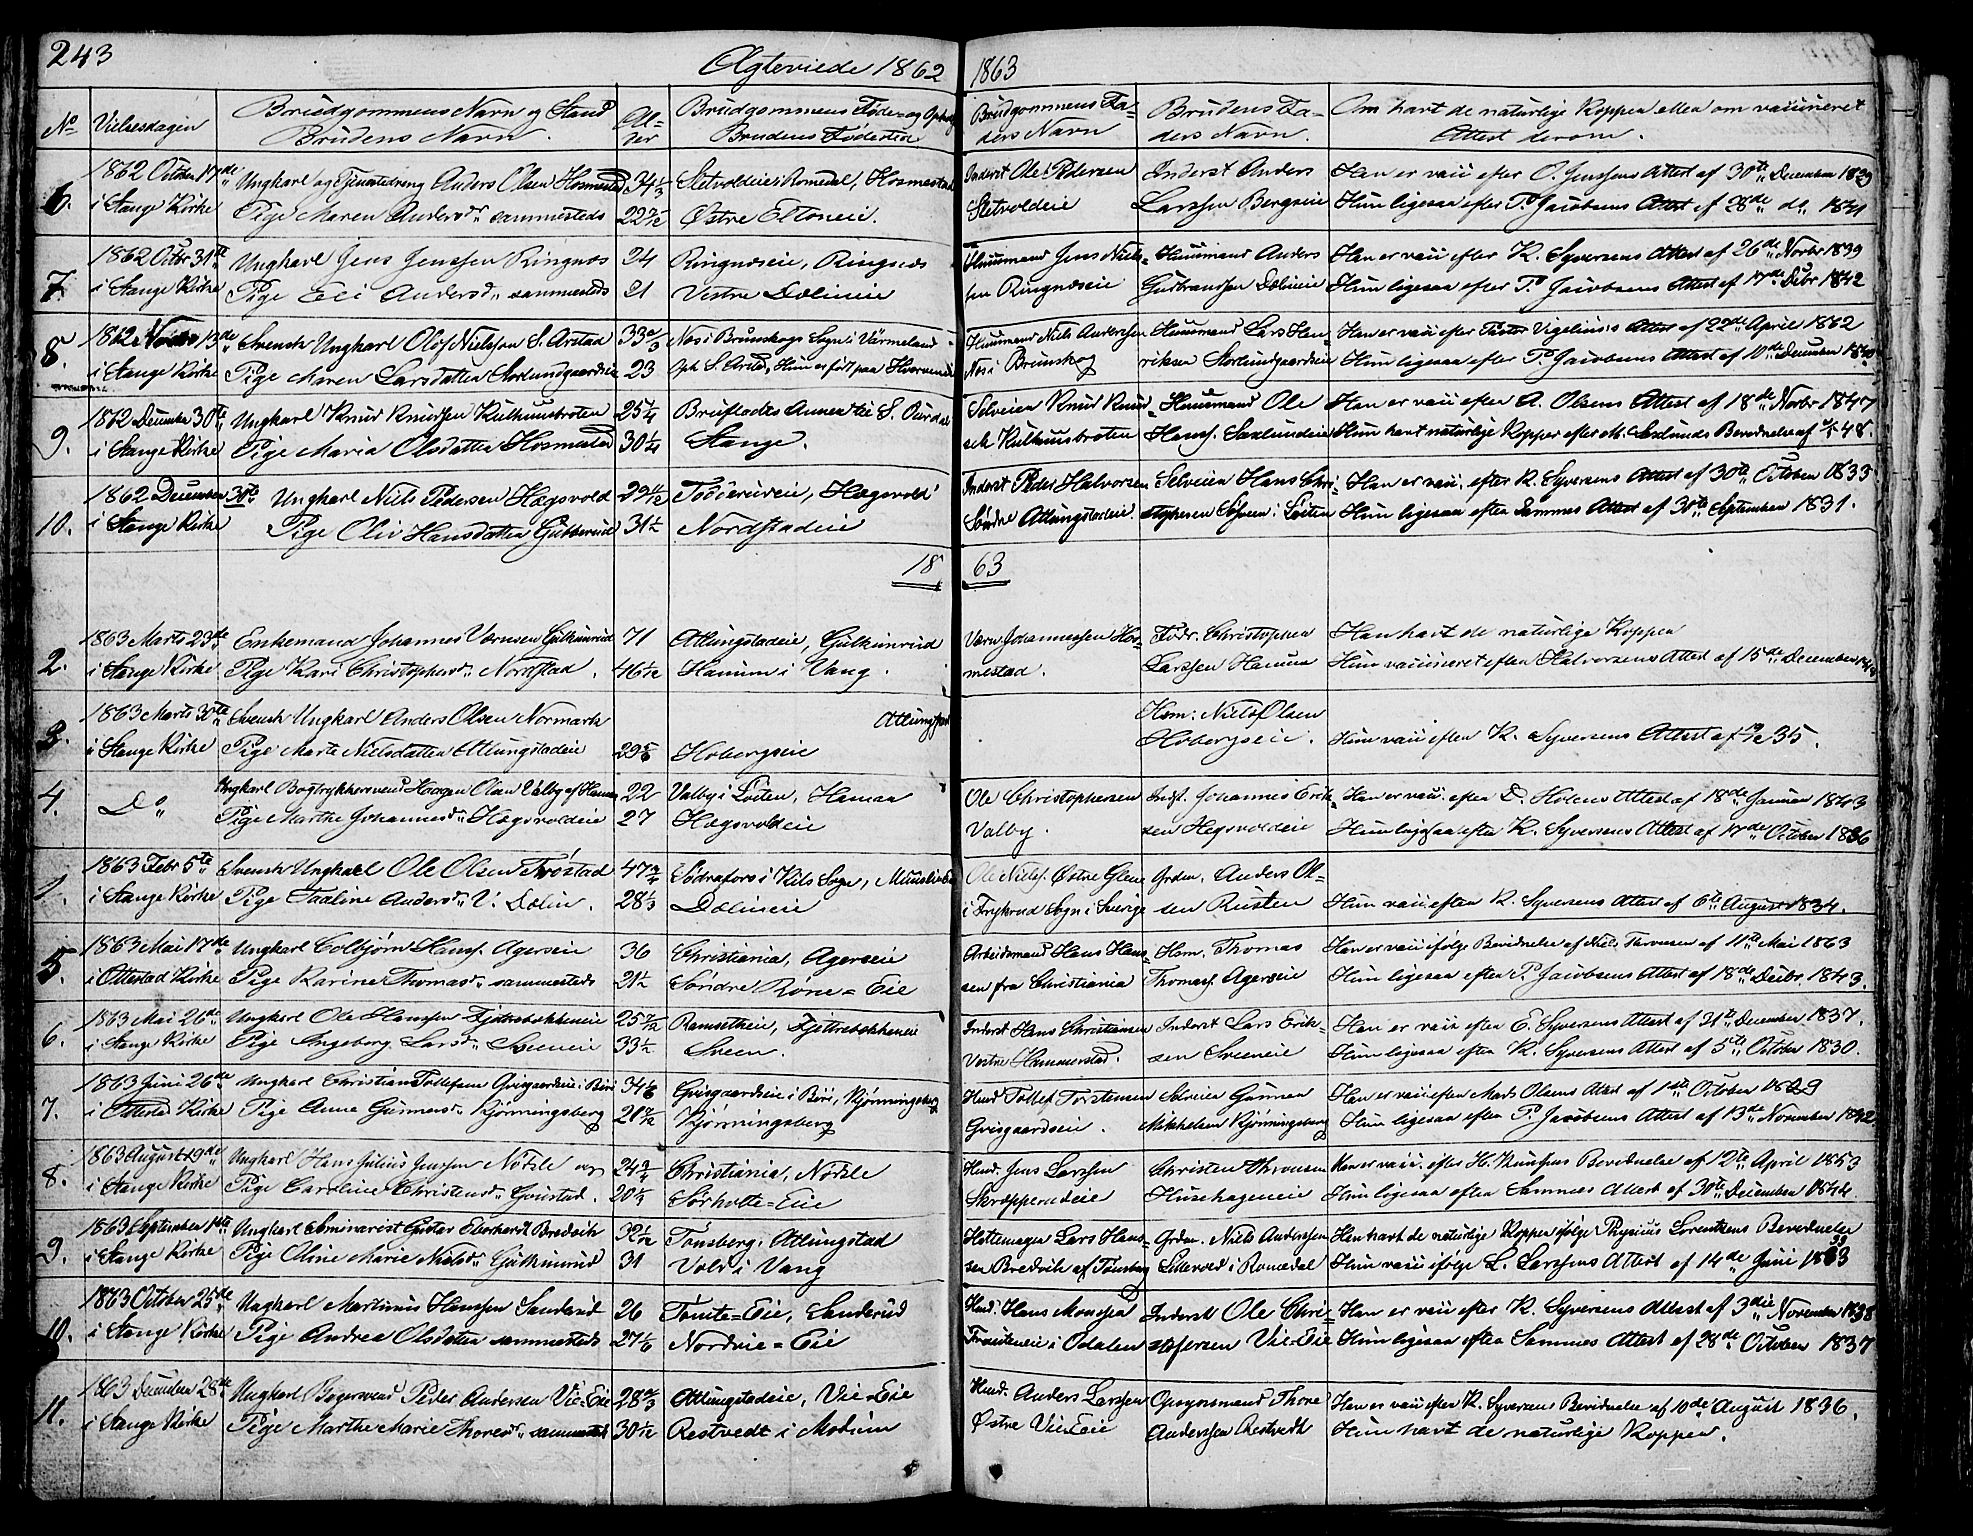 243
Ægteviede 1862
1863
No
Vielsesdagen
Brudgommens Navn og Stand
Brudens Navn.
Al-
der
Brudgommens Føde- og Opholdst
Brudens Fødested
Brudgommens Fa-
ders Navn
Brudens Fa-
ders Navn.
Om havt de naturlige Kopper eller om vaccineret
Attest derom.
6.
1862 October 17de
i Stange Kirke
Ungkarl og Tjenstedreng Anders Olsen Hosmestad
Pige Maren Andersd. sammesteds
Sletvoldeie i Romedal, Hosmestad
Østre Ettoneie.
Inderst Ole Pedersen
Sletvoldeie
Inderst Anders
Larssen Bergseie
Han er vacc efter O. Jenssens Attest af 30te December 1829
Hun ligesaa efter P. Jacobsens Attest af 28de do 1841
7.
1862 Octbr 31te
i Stange Kirke
Ungkarl Jens Jenssen Ringnes
Pige Eli Andersd. sammesteds
24
21
Ringnæseie, Ringnes
Vestre Dælineie
Huusmand Jens Niels-
sen Ringnæseie
Huusmand Anders
Gudbrandsen Dælineie
Han er vacc efter K. Syversens Attest af 26de Novbr 1839
Hun ligesaa efter P. Jacobsens Attest af 17de Decbr 1842
8.
1862 Novbr 13de
i Stange Kirke
Svensk Ungkarl Olof Nielsson S. Arstad
Pige Maren Larsdatter Storlundgaardeie
33 2/3
23
Nos i Brunskogs Sogn i Värmeland
Oph. S. Arstad, Hun er født paa
Huusmand Niels Andersson
Nos i Brunskog
Huusmand Lars Hen-
riksen Storlundgaardeie
Han er vacc efter Pastor Vigelius's Attest af 22de April 1862
Hun ligesaa efter P. Jacobsens Attest af 10de December 1840
9.
1862 December 30te
i Stange Kirke
Ungkarl Knud Knudsen Kulhuusbroten
Pige Maria Olsdatter Hosmestad
25 1/4
30 1/4
Bruflodts Annex til S. Aurdal
Stange.
Selveier Knud Knud-
sen Kulhuusbroten
Huusmand Ole
Hans. Saxlundeie
Han er vacc efter A. Olsens Attest af 18de Novbr 1847
Hun havt naturlige Kopper efter M. Saxlunds Bevidnelse af 48.
10.
1862 December 30te
i Stange Kirke
Ungkarl Niels Pedersen Hægsvold
Pige Oliv Hansdatter Gubberud
31 1/2
Tødderudeie, Hægsvold
Nordstadeie
Inderst Peder Halvorsen
Søndre Atlungstadeie
Selveier Hans Chri-
stophersen i Løiten
Han er vacc. efter K. Syversens Attest af 30te October 1833
Hun ligesaa efter Sammes Attest af 30te September 1831.
18
63
2.
1863 Marts 23de
i Stange Kirke
Enkemand Johannes Værnsen Gulkinrud
Pige Kari Christophersd. Nordstad.
71
46 1/2
Atlungstadeie, Gulkinrud
Hanum i Vang.
Værn Johannessen Hos-
mestad.
Fodr. Christopher
Larssen Hanum
Han havt de naturlige Kopper
Hun vaccineret efter Halvorsens Attest af 15de December
3.
1863 Marts 30te
i Stange Kirke
Svensk Ungkarl Anders Olsen Normark
Pige Marte Nielsdatter Atlungstadeie
29 5/6
Atlungstad
Hobergseie
Hsm: Niels Olsen
Hobergseie.
Hun vacc efter K. Syversens Attest af 35.
4.
Do
Ungkarl Bogtrykkersvend Haagen Olsen Valby af Hamar
Pige Marthe Johannesd. Hægsvoldeie
22
27
Valby i Løiten, Hamar
Hægsvoldeie
Ole Christophersen
Valby.
Indst. Johannes Erik-
sen Hegsvoldeie
Han er vacc. efter D. Holens Attest af 18de Januar 1843
Hun ligesaa efter K. Syversens Attest af 17de October 1836
1.
1863 Febr 5te
i Stange Kirke
Svensk Ungkarl Ole Olsen Frøstad
Pige Pauline Andersd. V. Dælin.
28 1/3
Södrafors i Kils Sogn,
Dælineie
Ole Nielss. Østre Glene
i Frykerud Sogn i Sverige
Grdm. Anders Ol-
sen Rusten
Hun vacc efter K. Syversens Attest af 6te August 1834.
5.
1863 Mai 17de
i Ottestad Kirke
Ungkarl Colbjørn Hanss. Agerseie
Pige Karine Thomasd. sammesteds
36
21 1/2
Christiania, Agerseie
Søndre Røne=Eie
Arbeidsmand Hans Hans-
sen fra Christiania
Hsm. Thomas
Thomass. Agerseie
Han er vacc ifølge Bevidnelse af Michl. Thronsen af 11te Mai 1863
Hun ligesaa efter P. Jacobsens Attest af 18de Decbr. 1843.
6.
1863 Mai 26de
i Stange Kirke
Ungkarl Ole Hanssen Fjettrebakkeneie
Pige Ingeborg Larsd. Sveeneie
33 1/2
Ramsetheie, Fjettrebakkeneie
Sveen.
Inderst Hans Christiansen
Vestre Hammerstad.
Inderst Lars Erik-
sen Sveeneie
Han er vacc efter E. Syversens Attest af 31te December 1837.
Hun ligesaa efter K. Syversens Attest af 5te October 1830.
7.
1863 Juni 26de
i Ottestad Kirke
Ungkarl Christian Tollefsen Grisgaardseie i Biri
Pige Anne Gunnersd. Kjønningsberg
Grisgaardseie i Biri, Kjønningsberg
Kjønningsberg
Husmd Tollef Torstensen
Grisgaardseie.
Selveier Gunner
Mikkelsen Kjønningsberg
Han er vacc efter Mads Olsens Attest af 1ste October 1829
Hun ligesaa efter P. Jacobsens Attest af 13de November 1842
8.
1863 August 19de
i Stange Kirke
Ungkarl Hans Julius Jenssen Nøtsle og
Pige Caroline Christensd. Gjøvstad.
24 3/4
Christiania, Nøtsle
Sørholte=Eie
Husmd. Jens Larssen
Skræpperudeie
Christen Thronsen
Husehageneie
Han er vacc. efter H. Knudsens Bevidnelse af 12te April 1853
Hun ligesaa efter Sammes Attest af 30te December 1844.
9.
1863 September 1ste
i Stange Kirke
Ungkarl Seminarist Gustav Eberhardt Bredvik
Pige Oline Marie Nielsd. Gulkinrud
31
Tønsberg, Atlungstad
Vold i Vang
Hattemager Lars Hans-
sen Bredvik af Tønsberg
Grdm. Niels Anderssen
Lillevold i Romedal
Han havt de naturlige Kopper ifølge Physicus Lorentzens Bevidnelse
Hun vacc ifølge L. Larssens Attest af 14de Juni 1833
10.
1863 October 25de
i Stange Kirke
Ungkarl Martinus Hanssen Sanderud
Pige Andrea Olsdatter sammesteds
26
27 1/6
Tomte=Eie, Sanderud
Nordvie=Eie
Husmd. Hans Monssen
i Odalen
Inderst Ole Chri-
stofersen Vie-Eie
Han er vacc efter K. Syversens Attest af 3die November 1838
Hun ligesaa efter Sammes Attest af 28de October 1837
11.
1863 December 28de
i Stange Kirke
Ungkarl Bøgersvend Peder Andersen Vie=Eie
Pige Marthe Marie Thoresd. sammesteds
28 2/3
30 1/2
Atlungstadeie, Vie-Eie
Restvedt i Modum
Husmd. Anders Larssen
Østre Vie-Eie
Opsynsmand Thore
Anderssen Restvedt
Han er vacc efter K. Syversens Bevidnelse af 10de August 1836.
Hun havt de naturlige Kopper.